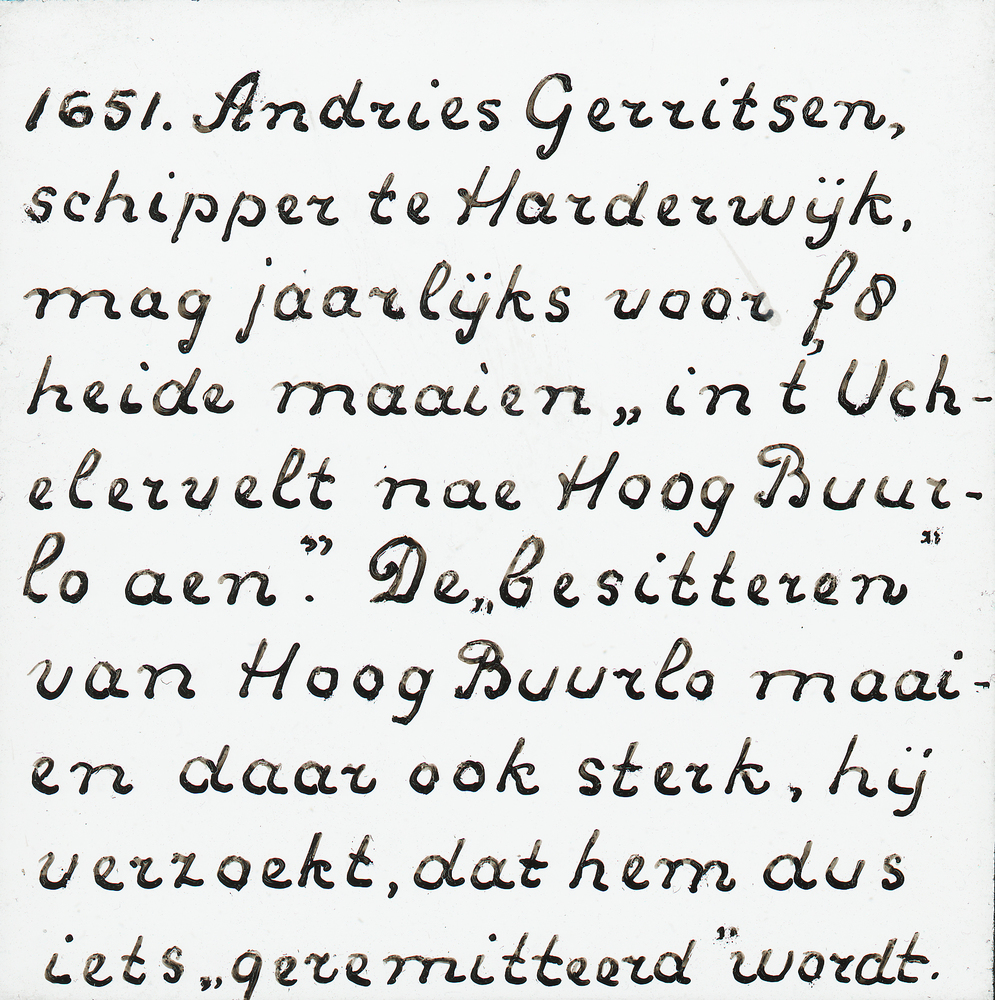 1651. Andries Gerritsen,
schipper te Harderwijk,
mag jaarlijks voor f 8
heide maaien „in 't Uch-
elervelt nae Hoog Buur-
lo aen”. De „besitteren”
van Hoog Buurlo maai-
en daar ook sterk, hij
verzoekt, dat hem dus
iets „geremitteerd” wordt.